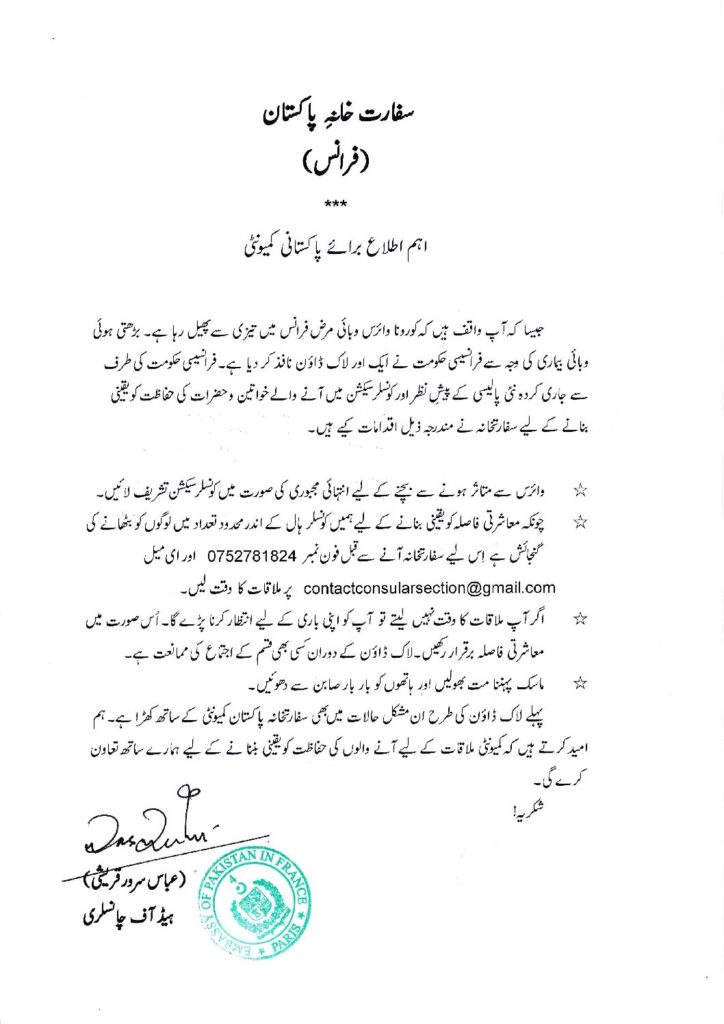 سفارت خانہِ پاکستان
(فرانس)
***
اہم اطلاع برائے پاکستانی کمیونٹی
جیسا کہ آپ واقف ہیں کہ کورونا وائرس وبائی مرض فرانس میں تیزی سے پھیل رہا ہے۔ بڑھتی ہوئی
وبائی بیماری کی وجہ سے فرانسیسی حکومت نے ایک اور لاک ڈاؤن نافذ کر دیا ہے۔ فرانسیسی حکومت کی طرف
سے جاری کردہ نئی پالیسی کے پیش نظر اور کونسلر سیکشن میں آنے والے خواتین و حضرات کی حفاظت کو یقینی
بنانے کے لیے سفارتخانہ نے مندرجہ ذیل اقدامات کیے ہیں۔
☆ وائرس سے متاثر ہونے سے بچنے کے لیے انتہائی مجبوری کی صورت میں کونسلر سیکشن تشریف لائیں۔
☆ چونکہ معاشرتی فاصلہ کو یقینی بنانے کے لیے ہمیں کونسلر ہال کے اندر محدود تعداد میں لوگوں کو بٹھانے کی
گنجائش ہے اِس لیے سفارتخانہ آنے سے قبل فون نمبر 0752781824 اور ای میل
contactconsularsection@gmail.com پر ملاقات کا وقت لیں۔
☆ اگر آپ ملاقات کا وقت نہیں لیتے تو آپ کو اپنی باری کے لیے انتظار کرنا پڑے گا۔ اُس صورت میں
معاشرتی فاصلہ برقرار رکھیں۔ لاک ڈاؤن کے دوران کسی بھی قسم کے اجتماع کی ممانعت ہے۔
☆ ماسک پہننا مت بھولیں اور ہاتھوں کو بار بار صابن سے دھوئیں۔
پہلے لاک ڈاؤن کی طرح ان مشکل حالات میں بھی سفارتخانہ پاکستان کمیونٹی کے ساتھ کھڑا ہے۔ ہم
امید کرتے ہیں کہ کمیونٹی ملاقات کے لیے آنے والوں کی حفاظت کو یقینی بنانے کے لیے ہمارے ساتھ تعاون
کرے گی۔
شکریہ!
(عباس سرور قریشی)
ہیڈ آف چانسلری
EMBASSY OF PAKISTAN IN FRANCE
★ PARIS ★
4